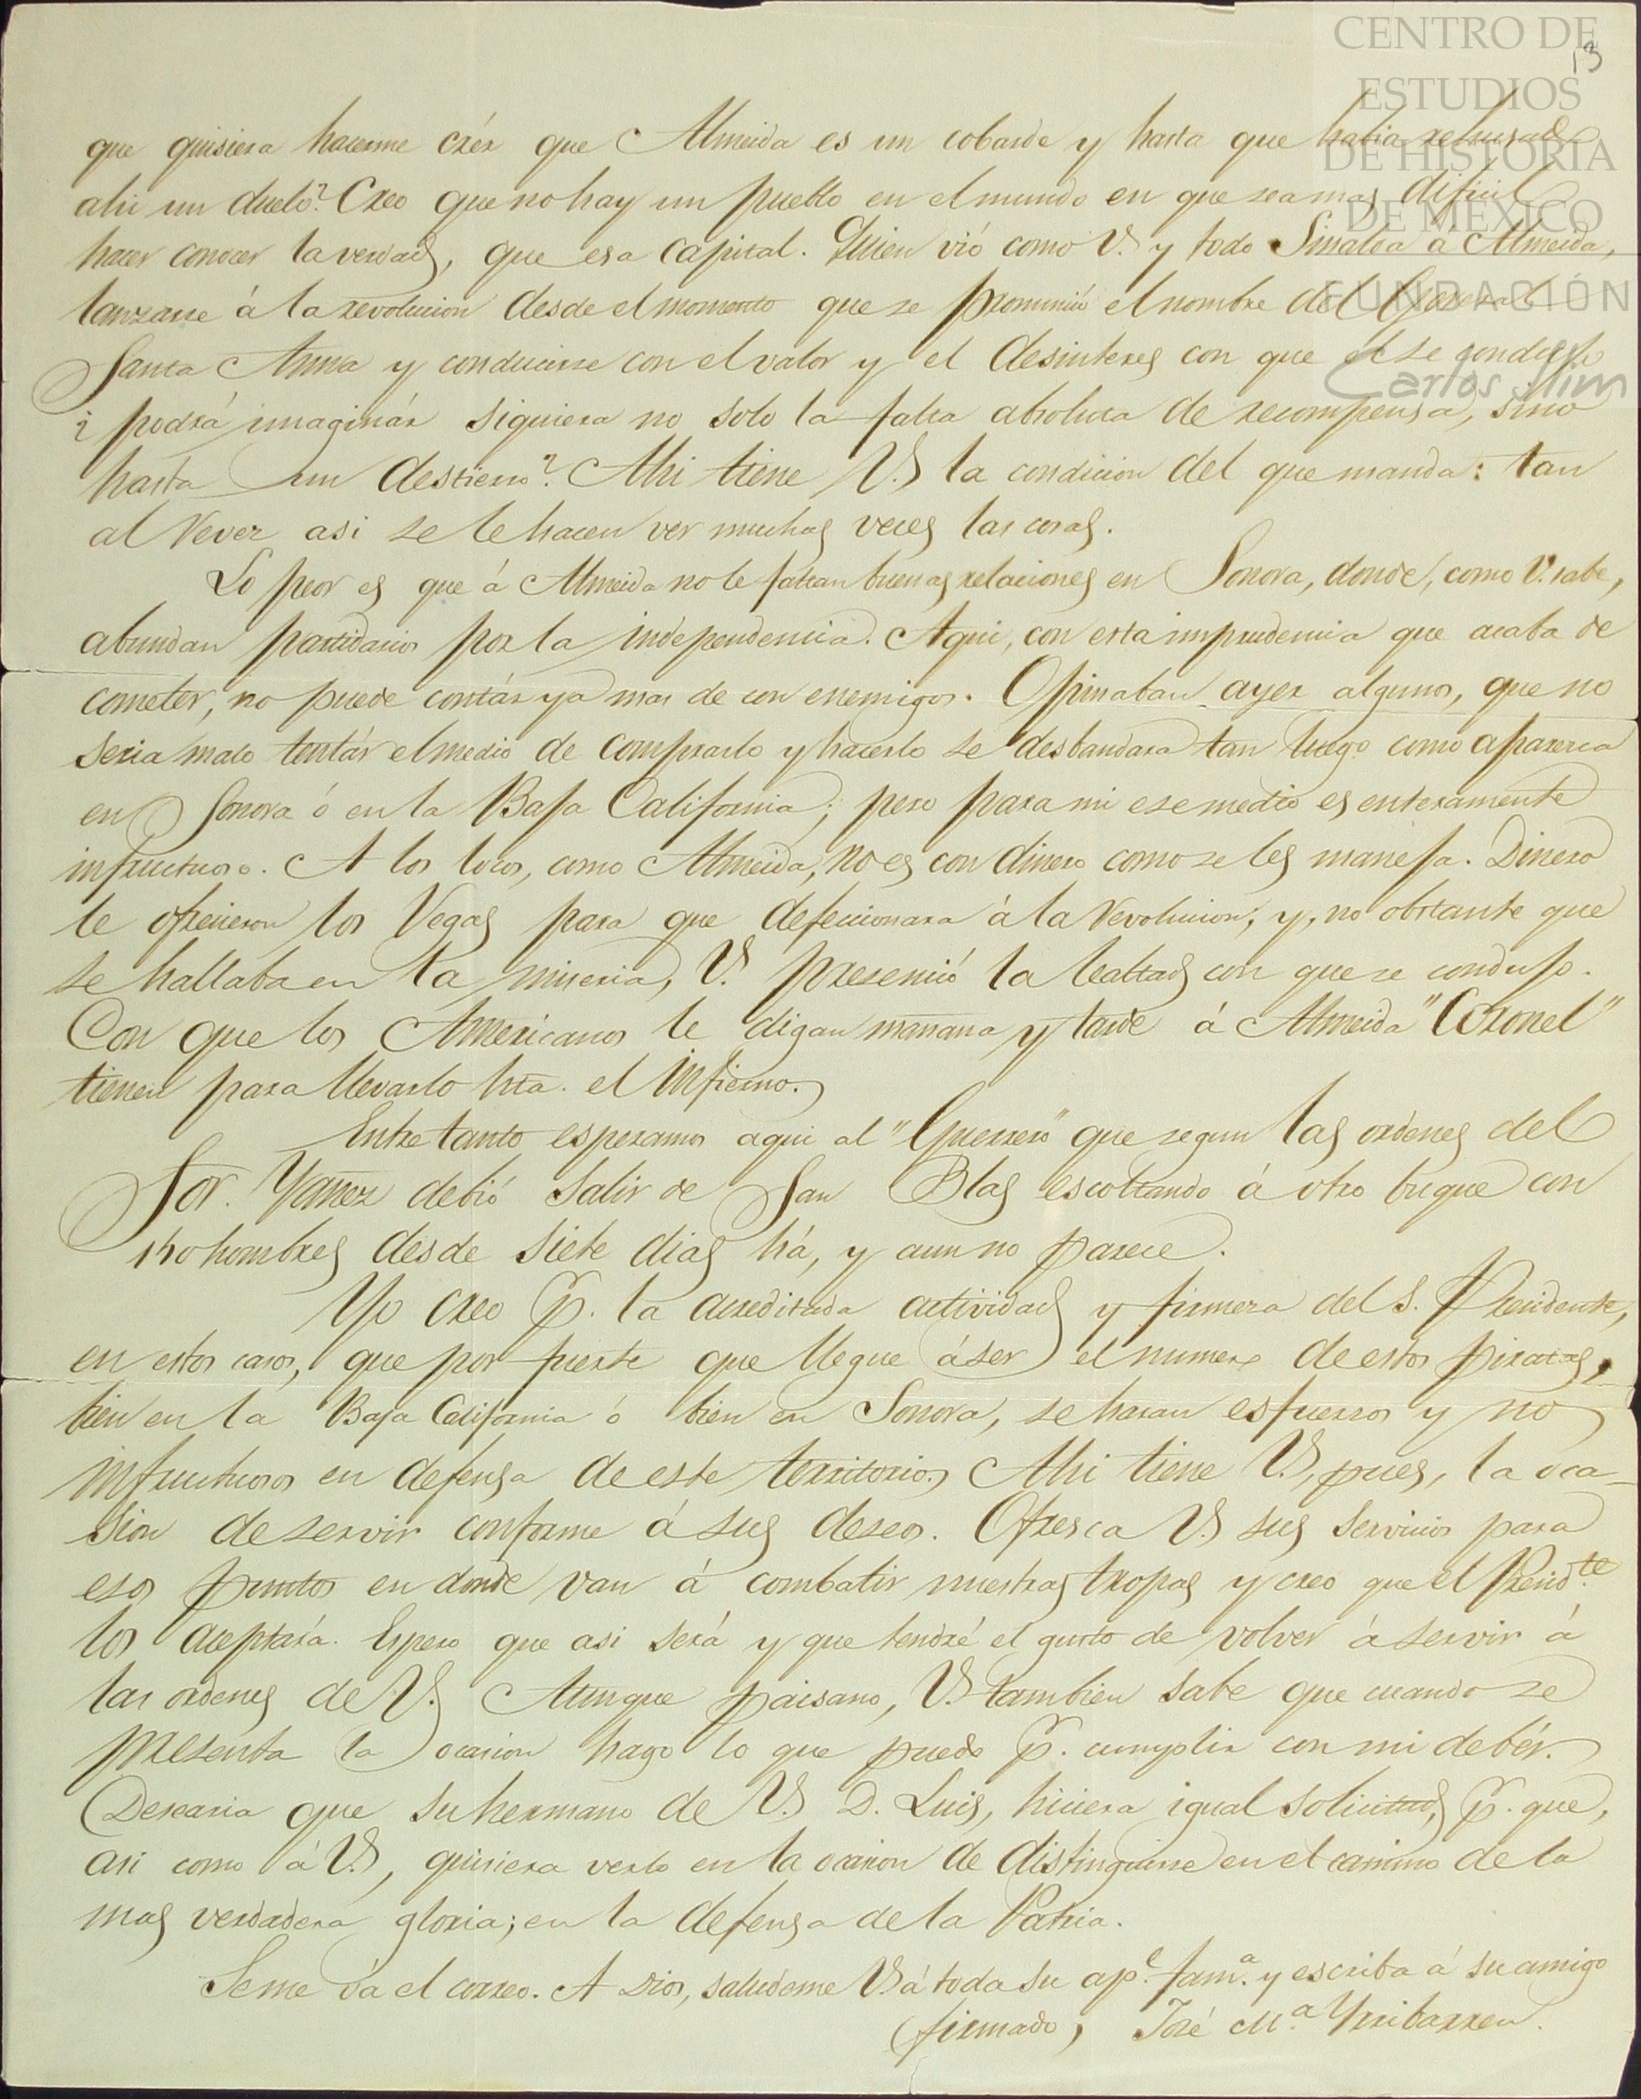 CENTRO DE
ESTUDIOS
DE HISTORIA
DE MÉXICO
FUNDACIÓN
Carlos Slim
13
que quisiera hacerme créer que Almeida es un cobarde y hasta que habia rehusado
ahi un duelo? Creo que no hay un pueblo en el mundo en que sea mas dificil
hacer conocer la verdad, que esa capital. Quien vió como V. y todo Sinaloa a Almeida,
lanzarse á la revolucion desde el momento que se pronunció el nombre del General
Santa Anna y conducirse con el valor y el desinteres con que él se condujo
¿podrá imaginár siquiera no solo la falta absoluta de recompensa, sino
hasta un destierro? Ahi tiene V. la condicion del que manda: tan
al rever asi se le hacen ver muchas veces las cosas.
Lo peor es que á Almeida no le faltan buenas relaciones en Sonora, donde, como V. sabe,
abundan partidarios por la independencia. Aqui, con esta imprudencia que acaba de
cometer, no puede contár ya mas de con enemigos. Opinaban ayer algunos, que no
seria malo tentár el medio de comprarlo y hacerlo se desbandara tan luego como aparesca
en Sonora ó en la Baja California; pero para mi ese medio es enteramente
infructuoso. A los locos, como Almeida, no es con dinero como se les maneja. Dinero
le ofrecieron los Vegas para que defeccionara á la revolucion, y, no obstante que
se hallaba en la miseria, V. presenció la lealtad con que se condujo.
Con que los Americanos le digan mañana y tarde á Almeida "Coronel"
tienen para llevarlo hta. el infierno.
Entre tanto esperamos aqui al "Guerrero" que segun las ordenes del
Sor. Yañez debió salir de San Blas escoltando á otro buque con
140 hombres desde siete dias há, y aun no parece.
Yo creo p. la acreditada actividad y firmeza del S. Presidente,
en estos casos, que por fuerte que llegue á ser el numero de estos piratas,
bien en la Baja California ó bien en Sonora, se haran esfuerzos y no
infructuosos en defensa de este territorio. Ahi tiene V., pues, la oca-
sion de servir conforme á sus deseos. Ofresca V. sus servicios para
esos puntos en donde van á combatir nuestras tropas y creo que el Presid.te
los aceptará. Espero que asi será y que tendré el gusto de volver á servir á
las ordenes de V. Aunque paisano, V. tambien sabe que cuando se
presenta la ocasion hago lo que puedo p. cumplir con mi debér.
Desearia que su hermano de V. D. Luis, hiciera igual solicitud, p. que,
asi como á V., quisiera verlo en la ocasion de distinguirse en el camino de la
mas verdadera gloria; en la defensa de la Patria.
Se me vá el correo. A Dios, saludeme V. á toda su ap.e fam.a y escriba á su amigo
(firmado) José M.a Yrribarren.